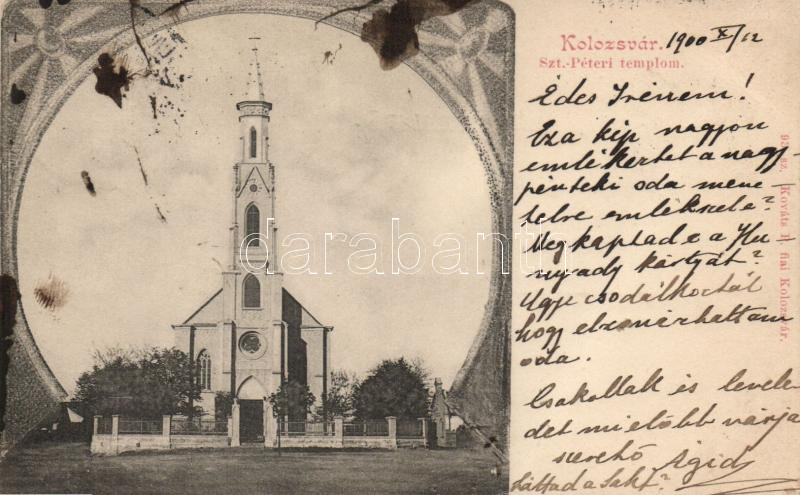 Kolozsvár. 1900 X/12
Szt.-Péteri templom.
Édes Irénem!
Eza kép nagyon
emlékertet a nagy-
pénteki oda mene-
telre emlékszele?
Megkaptad e a Hu-
nyady kártyát?
Ugye csodálkoztál
hogy elzonárhattam
oda.
Csakollak is levele-
det mielőbb várja
szerető Ágid
Láttad a Sakt?
darabanth.com
sz. Kováts P. fiai Kolozsvár.